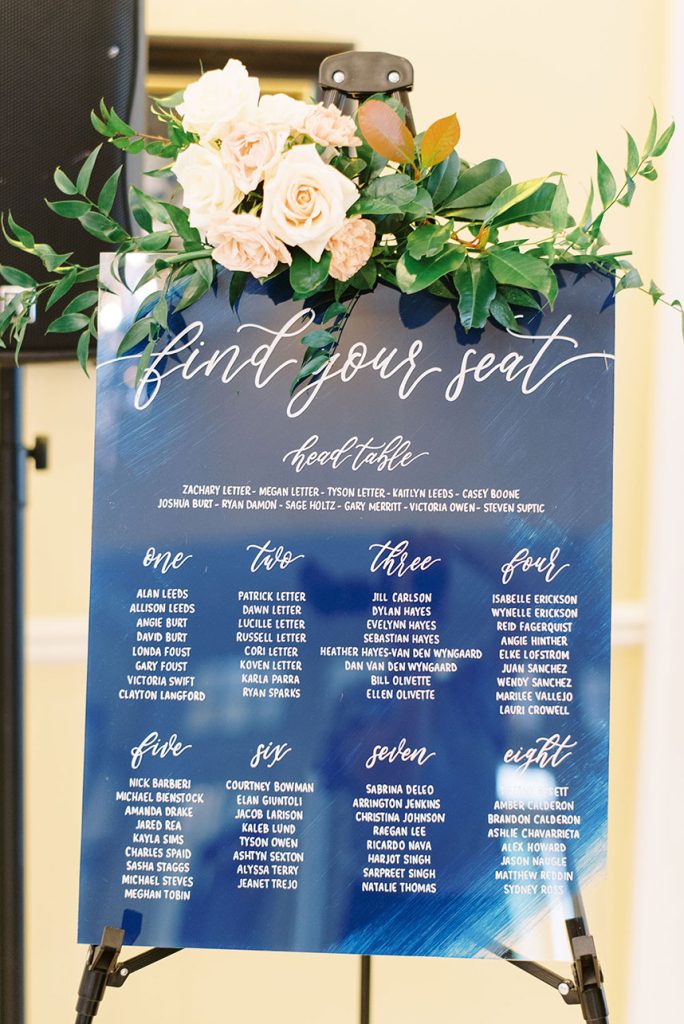 find your seat
head table
ZACHARY LETTER - MEGAN LETTER - TYSON LETTER - KAITLYN LEEDS - CASEY BOONE
JOSHUA BURT - RYAN DAMON - SAGE HOLTZ - GARY MERRITT - VICTORIA OWEN - STEVEN SUPTIC
one
ALAN LEEDS
ALLISON LEEDS
ANGIE BURT
DAVID BURT
LONDA FOUST
GARY FOUST
VICTORIA SWIFT
CLAYTON LANGFORD
two
PATRICK LETTER
DAWN LETTER
LUCILLE LETTER
RUSSELL LETTER
CORI LETTER
KOVEN LETTER
KARLA PARRA
RYAN SPARKS
three
JILL CARLSON
DYLAN HAYES
EVELYNN HAYES
SEBASTIAN HAYES
HEATHER HAYES-VAN DEN WYNGAARD
DAN VAN DEN WYNGAARD
BILL OLIVETTE
ELLEN OLIVETTE
four
ISABELLE ERICKSON
WYNELLE ERICKSON
REID FAGERQUIST
ANGIE HINTHER
ELKE LOFSTROM
JUAN SANCHEZ
WENDY SANCHEZ
MARILEE VALLEJO
LAURI CROWELL
five
NICK BARBIERI
MICHAEL BIENSTOCK
AMANDA DRAKE
JARED REA
KAYLA SIMS
CHARLES SPAID
SASHA STAGGS
MICHAEL STEVES
MEGHAN TOBIN
six
COURTNEY BOWMAN
ELAN GIUNTOLI
JACOB LARISON
KALEB LUND
TYSON OWEN
ASHTYN SEXTON
ALYSSA TERRY
JEANET TREJO
seven
SABRINA DELEO
ARRINGTON JENKINS
CHRISTINA JOHNSON
RAEGAN LEE
RICARDO NAVA
HARJOT SINGH
SARPREET SINGH
NATALIE THOMAS
eight
AMBER CALDERON
BRANDON CALDERON
ASHLIE CHAVARRIETA
ALEX HOWARD
JASON NAUGLE
MATTHEW REDDIN
SYDNEY ROSS